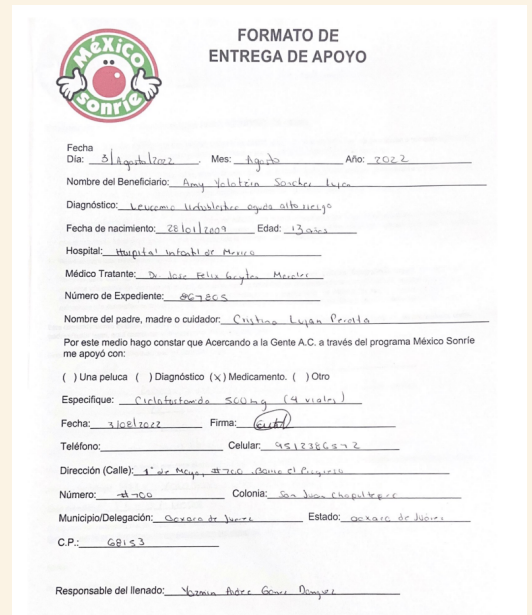 México
sonríe
FORMATO DE
ENTREGA DE APOYO
Fecha
Día: 3/Agosto/2022 Mes: Agosto Año: 2022
Nombre del Beneficiario: Amy Yolotzin Sanchez Lujan
Diagnóstico: Leucemia linfoblastica aguda alto riesgo
Fecha de nacimiento: 28/01/2009 Edad: 13 años
Hospital: Hospital Infantil de Mexico
Médico Tratante: Dr Jose Felix
Número de Expediente: 867805
Nombre del padre, madre o cuidador: Cristina Lujan Peralta
Por este medio hago constar que Acercando a la Gente A.C. a través del programa México Sonríe
me apoyó con:
( ) Una peluca ( ) Diagnóstico (x) Medicamento. ( ) Otro
Especifique: Ciclofosfamida 500mg (4 viales)
Fecha: 3/08/2022 Firma:
Teléfono: Celular: 9512386572
Dirección (Calle): 1° de Mayo, #700 Barrio el Progreso
Número: #700 Colonia: San Juan Chapultepec
Municipio/Delegación: Oaxaca de Juarez Estado: oaxaca de Juarez
C.P.: 68153
Responsable del llenado: Yazmin